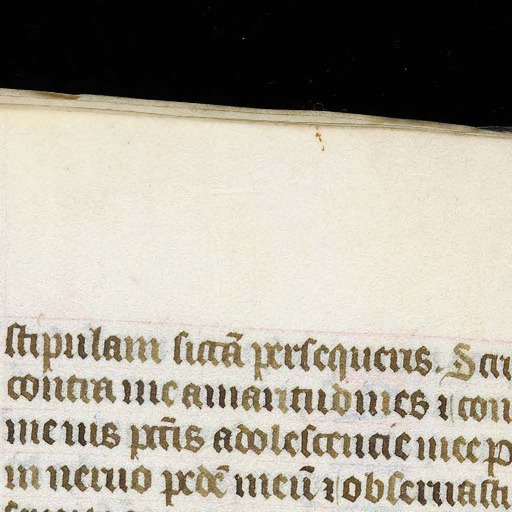 stipulam siccā persequeris. Scri
contra me amaritudines ⁊ con
me uis pctīs adolescencie mee p
in neruo pedē meū ⁊ obseruasti